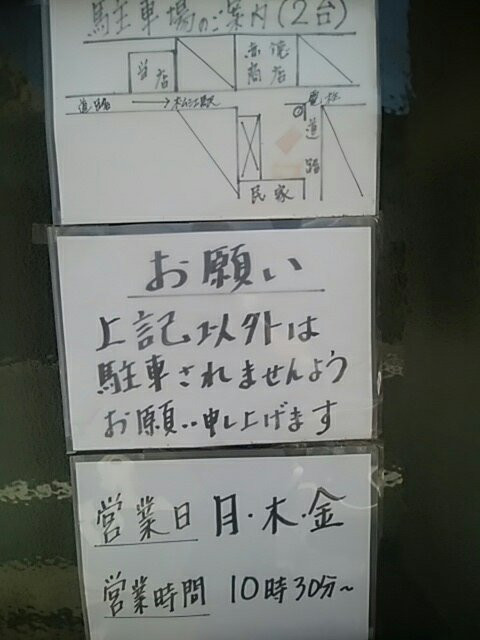 駐車場のご案内(2台)
当店
商店
道路
→松江駅
電柱
道路
民家
お願い
上記以外は
駐車されませんよう
お願い申し上げます
営業日 月・木・金
営業時間 10時30分~